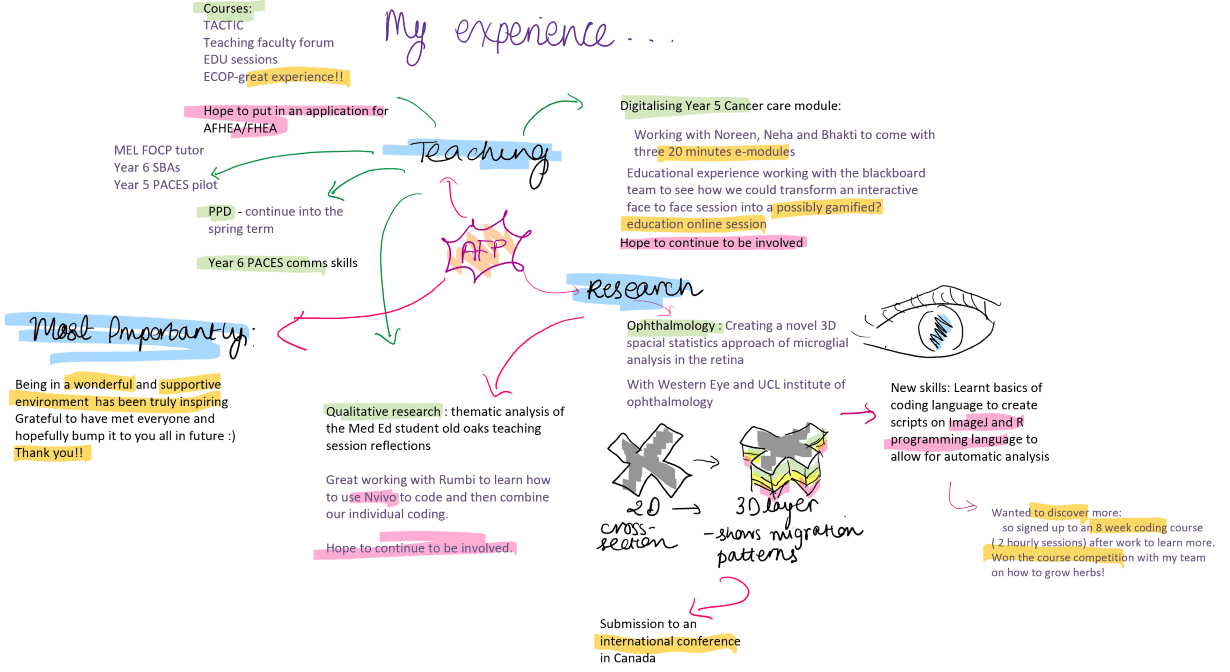 My experience...
Courses:
TACTIC
Teaching faculty forum
EDU sessions
ECOP-great experience!!
Hope to put in an application for
AFHEA/FHEA
MEL FOCP tutor
Year 6 SBAs
Year 5 PACES pilot
PPD - continue into the
spring term
Year 6 PACES comms skills
Teaching
AFP
Digitalising Year 5 Cancer care module:
Working with Noreen, Neha and Bhakti to come with
three 20 minutes e-modules
Educational experience working with the blackboard
team to see how we could transform an interactive
face to face session into a possibly gamified?
education online session
Hope to continue to be involved
Research
Ophthalmology : Creating a novel 3D
spacial statistics approach of microglial
analysis in the retina
With Western Eye and UCL institute of
ophthalmology
2D
cross-
section
3D layer
-shows migration
patterns
Submission to an
international conference
in Canada
New skills: Learnt basics of
coding language to create
scripts on ImageJ and R
programming language to
allow for automatic analysis
Wanted to discover more:
so signed up to an 8 week coding course
( 2 hourly sessions) after work to learn more.
Won the course competition with my team
on how to grow herbs!
Qualitative research : thematic analysis of
the Med Ed student old oaks teaching
session reflections
Great working with Rumbi to learn how
to use Nvivo to code and then combine
our individual coding.
Hope to continue to be involved.
Most Importantly:
Being in a wonderful and supportive
environment has been truly inspiring
Grateful to have met everyone and
hopefully bump it to you all in future :)
Thank you!!